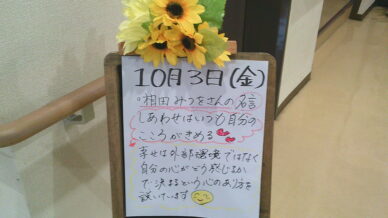 10月3日(金)
相田みつをさんの名言
しあわせはいつも自分の
こころがきめる
幸せは外部環境ではなく
自分の心がどう感じるか
で決まるという心のあり方を
説いています